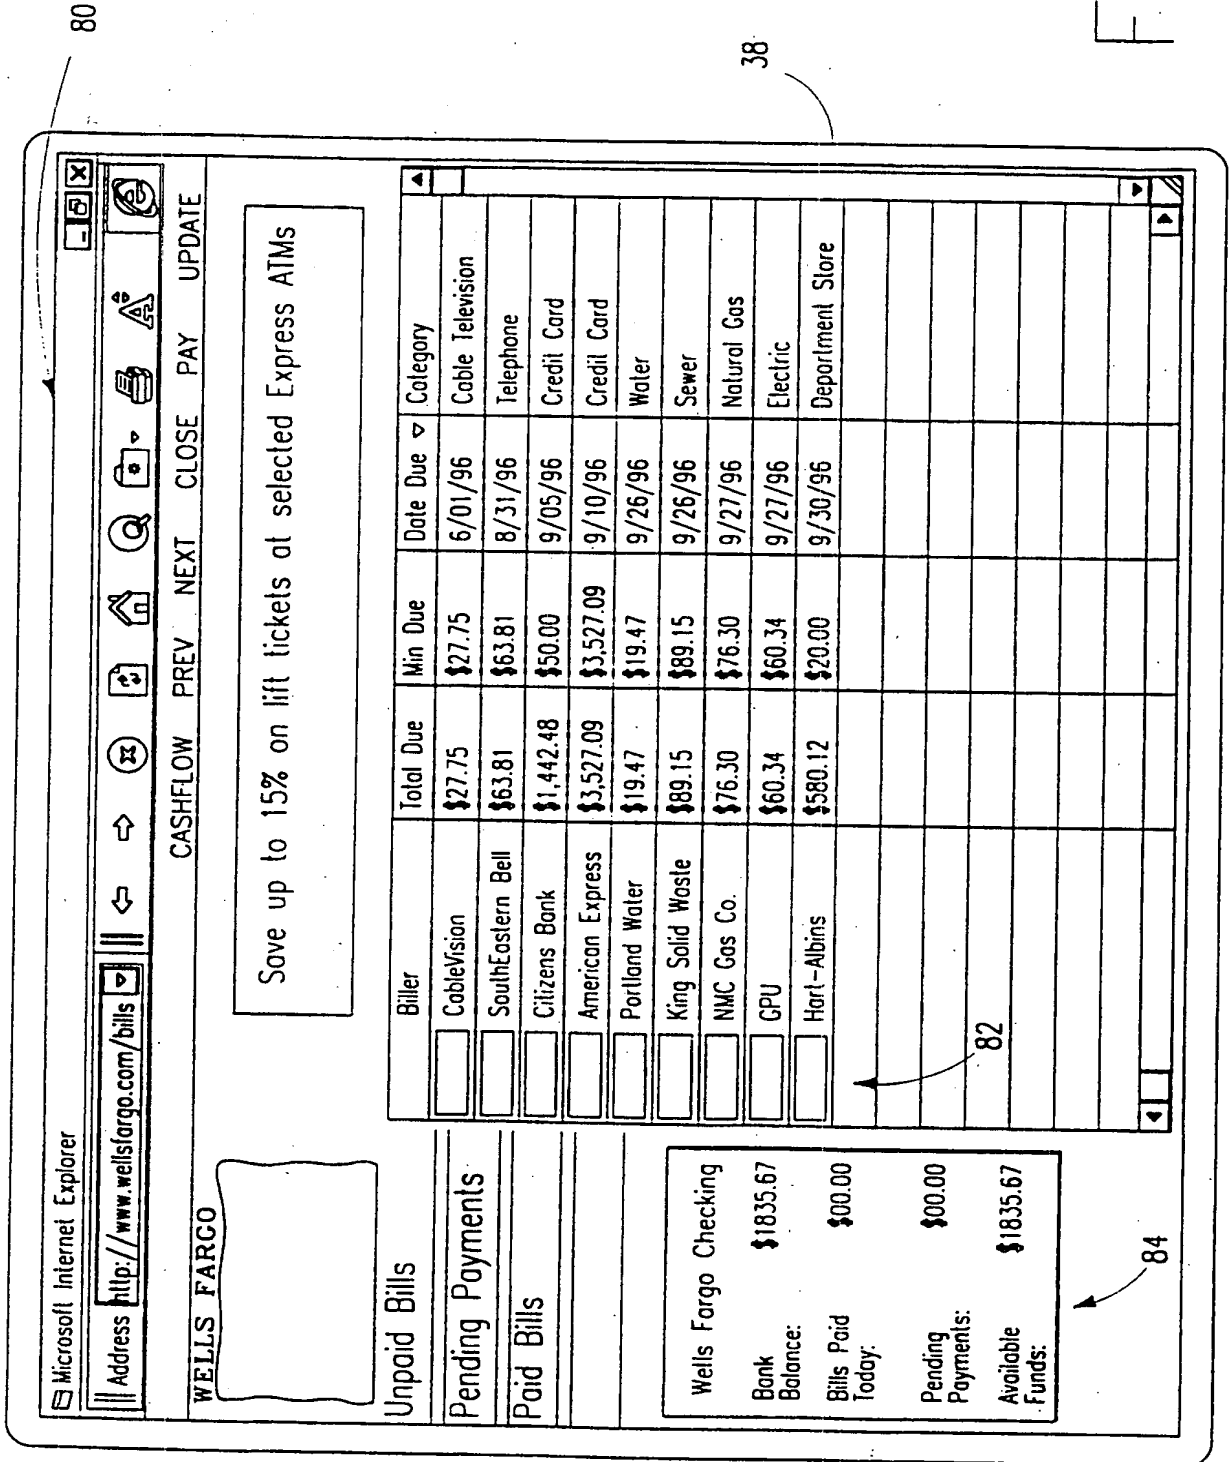 80
Microsoft Internet Explorer
Address http://www.wellsfargo.com/bills
CASHFLOW PREV NEXT CLOSE PAY UPDATE
WELLS FARGO
Save up to 15% on lift tickets at selected Express ATMs
Unpaid Bills
Pending Payments
Paid Bills
Biller Total Due Min Due Date Due Category
CableVision $27.75 $27.75 6/01/96 Cable Television
SouthEastern Bell $63.81 $63.81 8/31/96 Telephone
Citizens Bank $1,442.48 $50.00 9/05/96 Credit Card
American Express $3,527.09 $3,527.09 9/10/96 Credit Card
Portland Water $19.47 $19.47 9/26/96 Water
King Solid Waste $89.15 $89.15 9/26/96 Sewer
NMC Gas Co. $76.30 $76.30 9/27/96 Natural Gas
GPU $60.34 $60.34 9/27/96 Electric
Hart-Albins $580.12 $20.00 9/30/96 Department Store
82
Wells Fargo Checking
Bank
Balance: $1835.67
Bills Paid
Today: $00.00
Pending
Payments: $00.00
Available
Funds: $1835.67
84
38